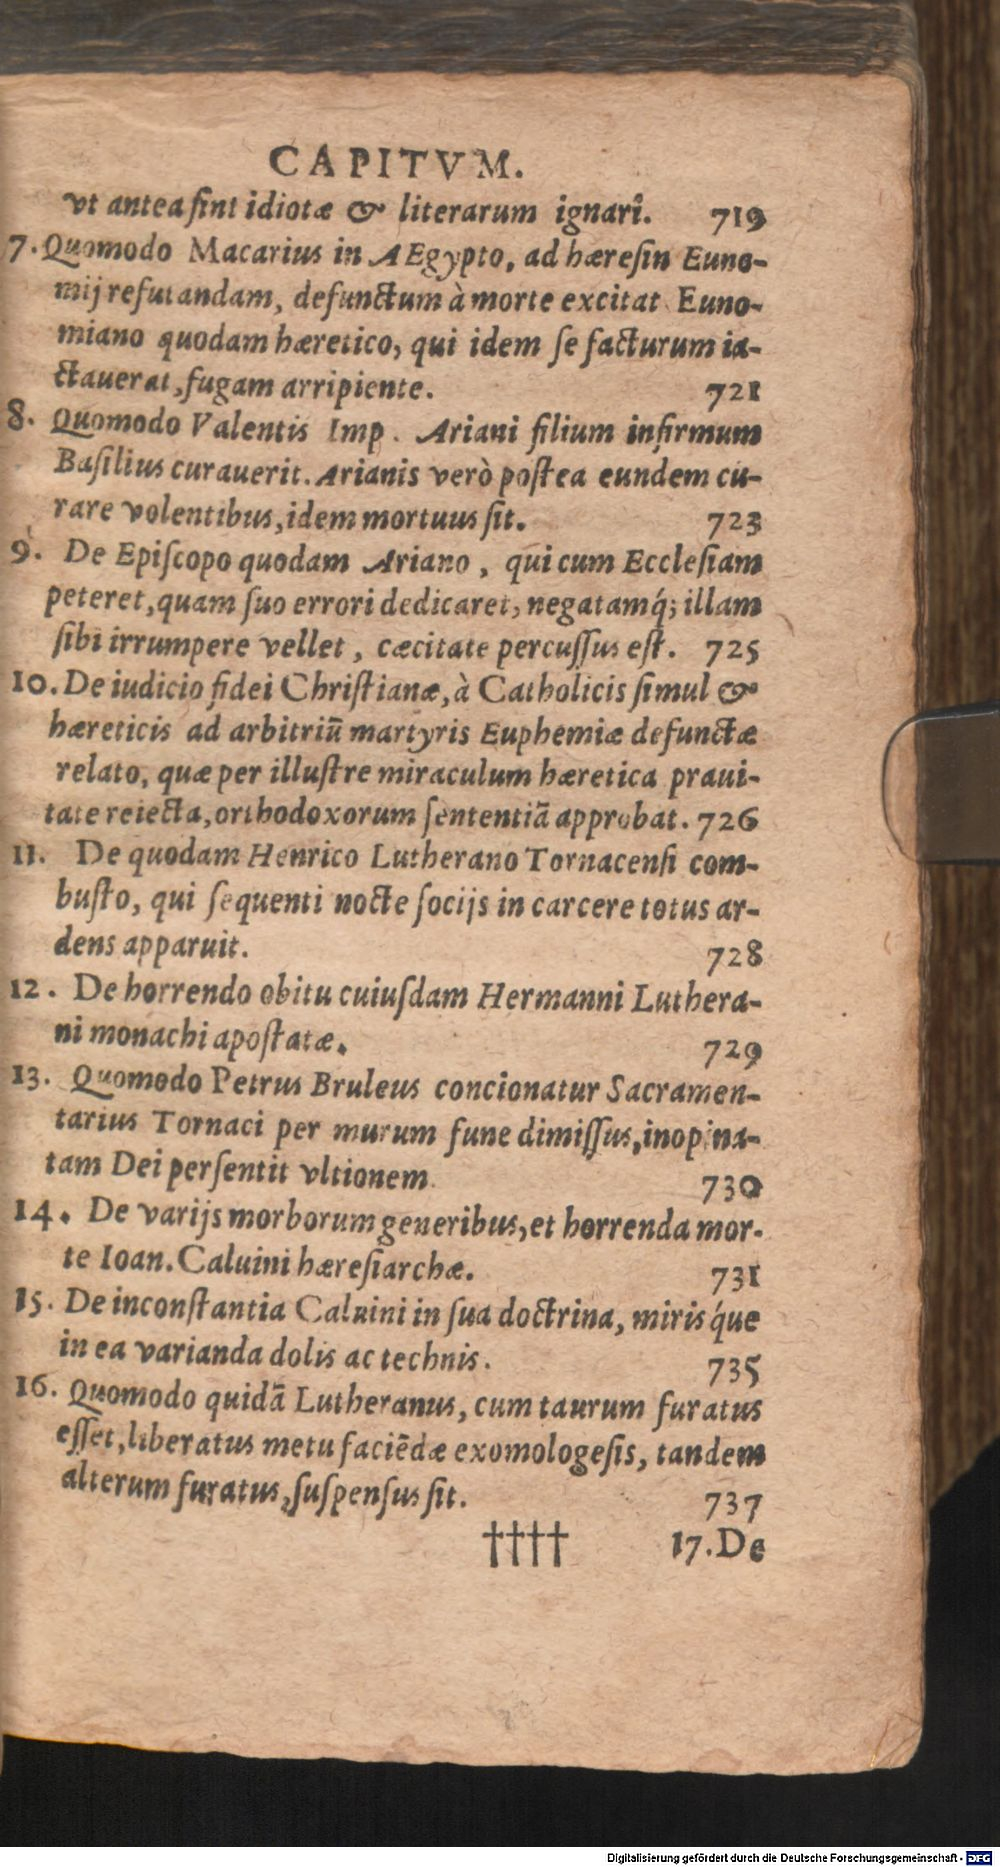 CAPITVM.
vt antea ſint idiotæ & literarum ignari. 719
7. Quomodo Macarius in AEgypto, ad hæreſin Euno-
mij refutandam, defunctum à morte excitat Euno-
miano quodam hæretico, qui idem ſe facturum ia-
ctauerat, fugam arripiente. 721
8. Quomodo Valentis Imp. Ariani filium infirmum
Baſilius curauerit. Arianis verò poſtea eundem cu-
rare volentibus, idem mortuus ſit. 723
9. De Epiſcopo quodam Ariano, qui cum Eccleſiam
peteret, quam ſuo errori dedicaret, negatamq́; illam
ſibi irrumpere vellet, cæcitate percuſſus eſt. 725
10. De iudicio fidei Chriſtianæ, à Catholicis ſimul &
hæreticis ad arbitriũ martyris Euphemiæ defunctæ
relato, quæ per illuſtre miraculum hæretica praui-
tate reiecta, orthodoxorum ſententiã approbat. 726
11. De quodam Henrico Lutherano Tornacenſi com-
buſto, qui ſequenti nocte ſocijs in carcere totus ar-
dens apparuit. 728
12. De horrendo obitu cuiuſdam Hermanni Luthera-
ni monachi apoſtatæ. 729
13. Quomodo Petrus Bruleus concionatur Sacramen-
tarius Tornaci per murum fune dimiſſus, inopina-
tam Dei perſentit vltionem. 730
14. De varijs morborum generibus, et horrenda mor-
te Ioan. Caluini hæreſiarchæ. 731
15. De inconſtantia Caluini in ſua doctrina, miris q́ue
in ea varianda dolis ac technis. 735
16. Quomodo quidã Lutheranus, cum taurum furatus
eſſet, liberatus metu faciẽdæ exomologeſis, tandem
alterum furatus, ſuſpenſus ſit. 737
†††† 17. De
Digitalisierung gefördert durch die Deutsche Forschungsgemeinschaft - DFG